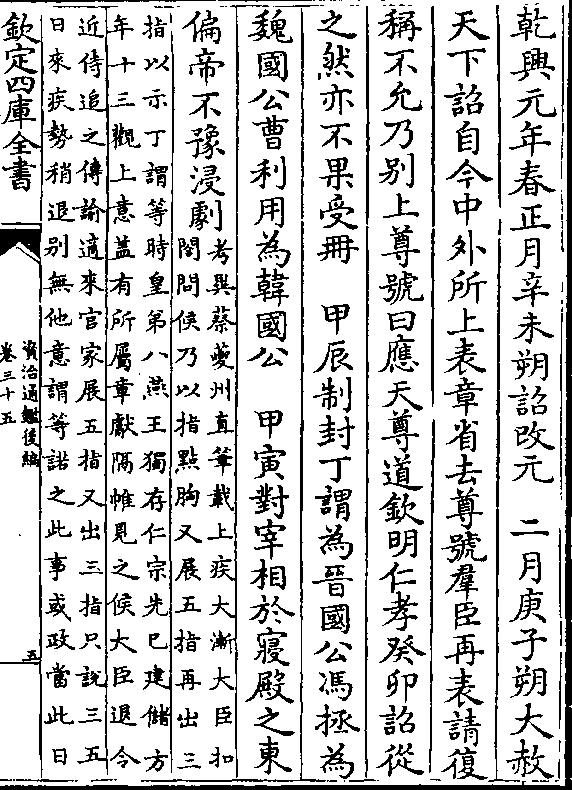 乾興元年春正月辛未朔詔改元　二月庚子朔大赦
天下詔自今中外所上表章省去尊號羣臣再表請復
稱不允乃别上尊號曰應天尊道欽明仁孝癸卯詔從
之然亦不果受冊　甲辰制封丁謂為晉國公馮拯為
魏國公曹利用為韓國公　甲寅對宰相於寢殿之東
偏帝不豫浸劇
考異蔡夔州直筆載上疾大漸大臣扣
閤問候乃以指點胸又展五指再出三
指以示丁謂等時皇弟八燕王獨存仁宗先已建儲方
年十三觀上意盖有所屬章獻隔帷見之候大臣退令
近侍追之傳諭適來官家展五指又出三指只說三五
日來疾勢稍退别無他意謂等諾之此事或政當此日
欽定四庫全書
資治通鑑後編
卷三十五
五